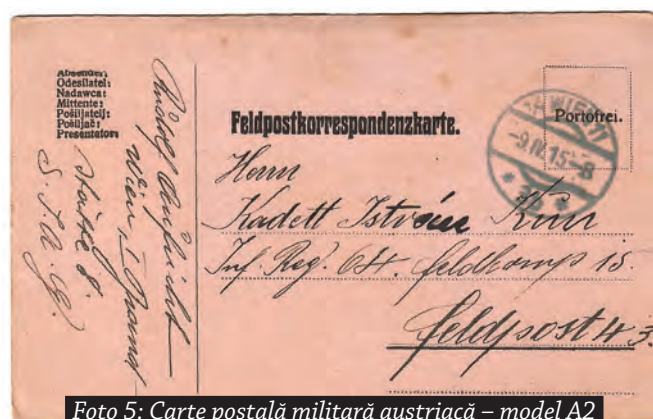 Absender:
Odesílatel:
Nadawca:
Mittente:
Pošiljatelj:
Pošiljač:
Presentator:
Rudolf
Wien, I
S.
Feldpostkorrespondenzkarte.
Portofrei.
WIEN
-9.IV.15-8
Herrn
Kadett István Kun
Inf. Reg. 64. Feldkomp 15.
Feldpost 43
Foto 5: Carte poștală militară austriacă – model A2